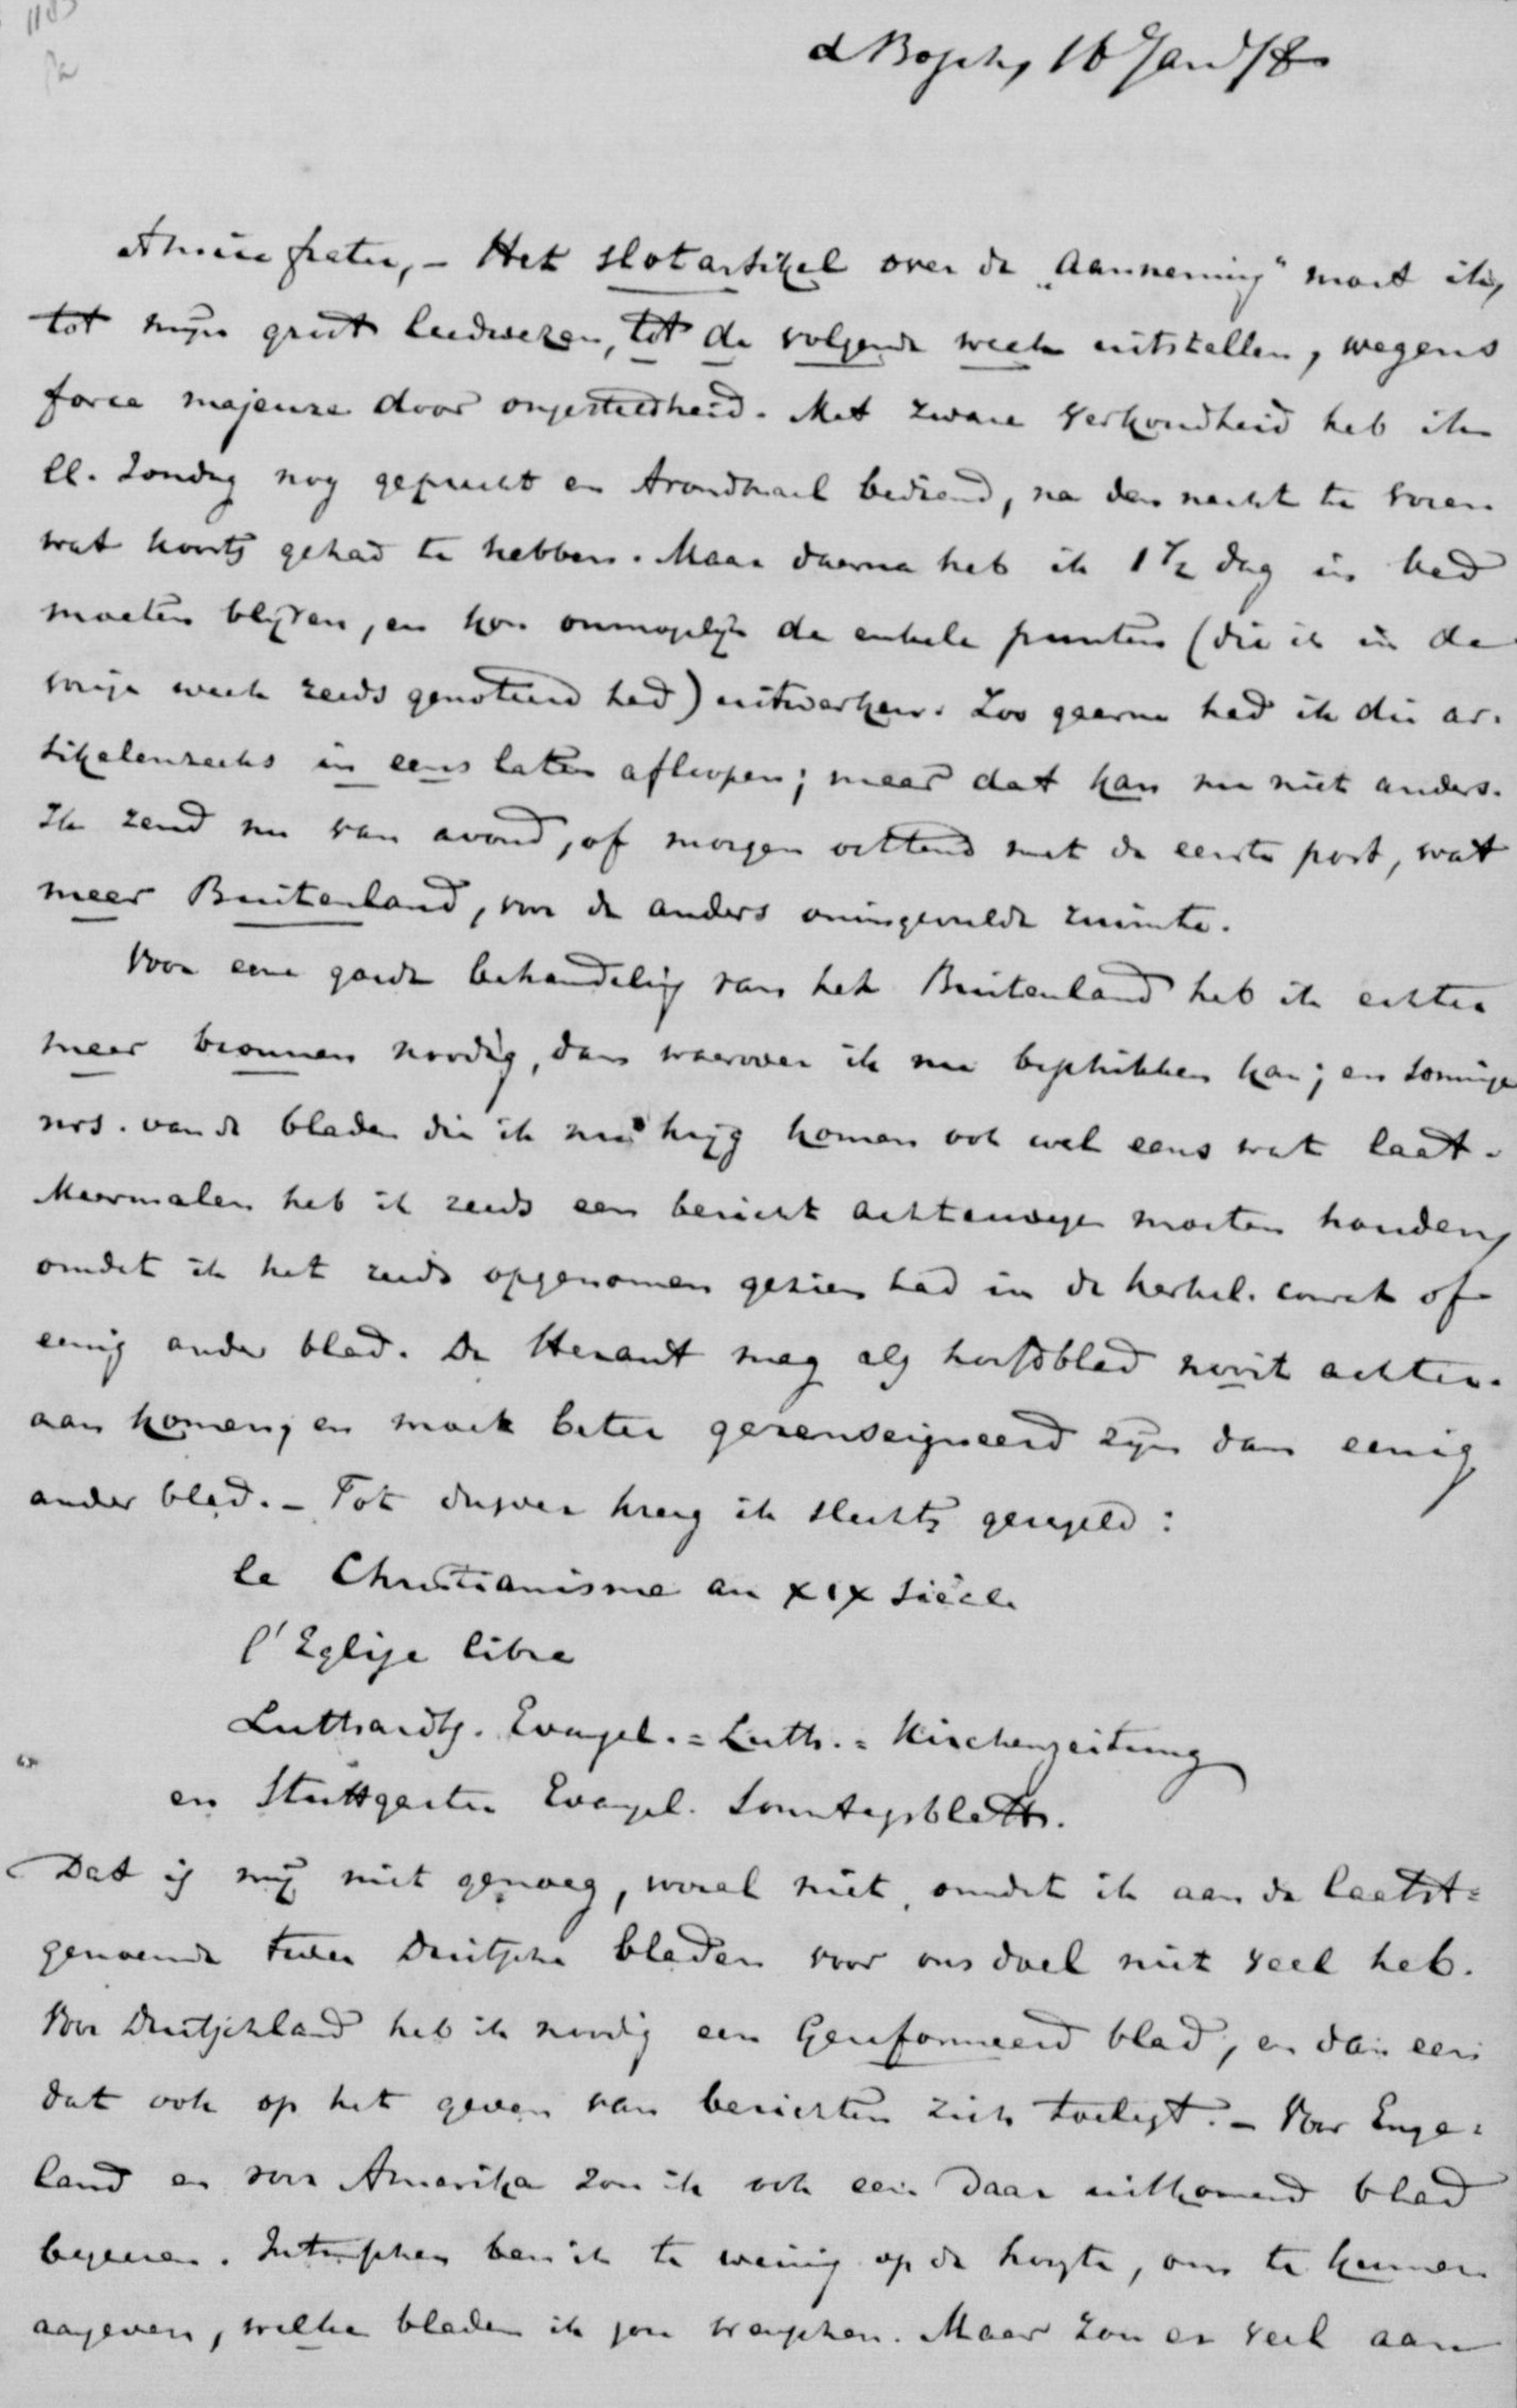 1183
d Bosch, 16 Jan/78
Amice frater, – Het slotartikel over de „Aanneming" moet ik,
tot mijn groot leedwezen, tot de volgende week uitstellen, wegens
force majeure door ongesteldheid. Met zware verkoudheid heb ik
ll. Zondag nog gepreekt en Avondmaal bediend, na den nacht te voren
wat koorts gehad te hebben. Maar daarna heb ik 1 1/2 dag in bed
moeten blijven, en kon onmogelijk de enkele punten (die ik in de
vorige week reeds genoteerd had) uitwerken. Zoo gaarne had ik die ar-
tikelenreeks in eens laten afloopen; maar dat kan nu niet anders.
Ik zend nu van avond, of morgen ochtend met de eerste post, wat
meer Buitenland, voor de anders oningevulde ruimte.
Voor eene goede behandeling van het Buitenland heb ik echter
meer bronnen noodig, dan waarover ik nu beschikken kan; en sommige
nos. van de bladen die ik nu krijg komen ook wel eens wat laat.
Meermalen heb ik reeds een bericht achterwege moeten houden,
omdat ik het reeds opgenomen gezien had in de kerkel. courant of
eenig ander blad. De Heraut mag als hoofdblad nooit achter-
aan komen, en moet beter gerenseigneerd zijn dan eenig
ander blad. – Tot dusver kreeg ik slechts geregeld:
le Christianisme au XIX siècle
l'Eglise libre
Luthardts. Evangel. = Luth. = Kirchenzeitung
en Stuttgarter Evangel. Sonntagsblatt.
Dat is mij niet genoeg, vooral niet, omdat ik aan de laatst=
genoemde twee Duitsche bladen voor ons doel niet veel heb.
Voor Duitschland heb ik noodig een Gereformeerd blad, en dan een
dat ook op het geven van berichten zich toelegt. – Voor Enge=
land en voor Amerika zou ik ook een daar uitkomend blad
begeeren. Intusschen ben ik te weinig op de hoogte, om te kunnen
aangeven, welke bladen ik zou wenschen. Maar zou er veel aan